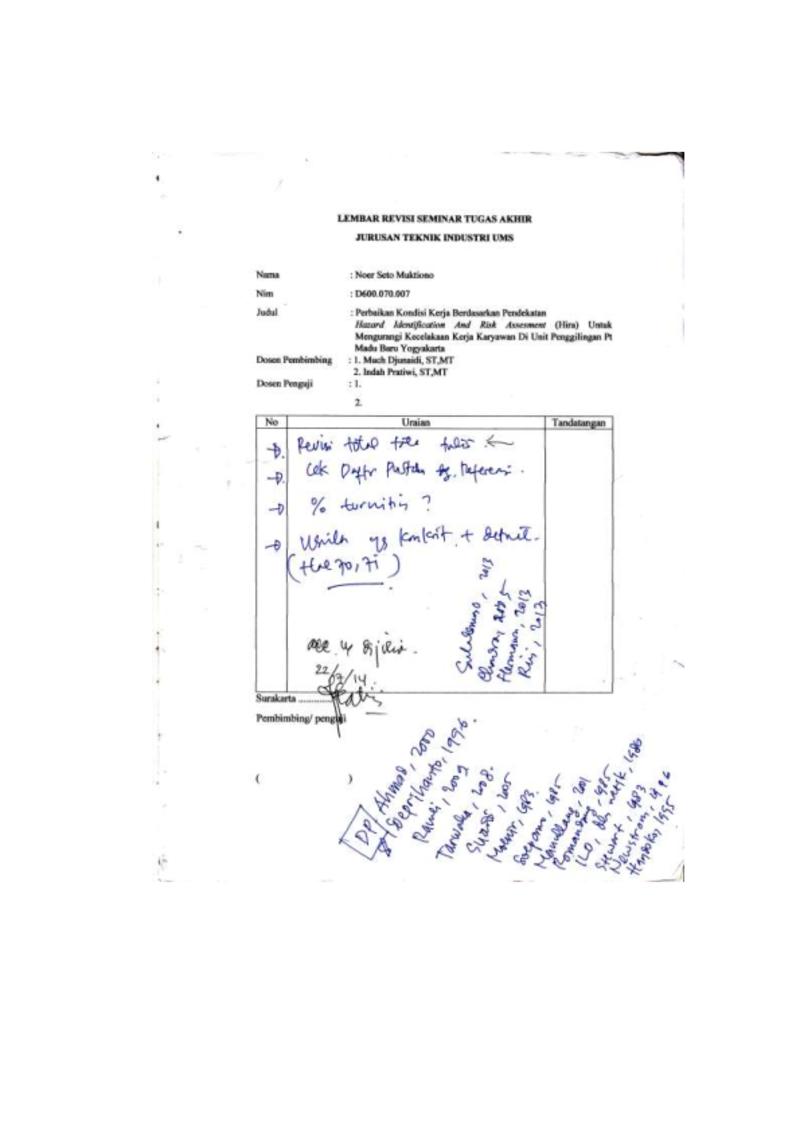 LEMBAR REVISI SEMINAR TUGAS AKHIR
JURUSAN TEKNIK INDUSTRI UMS
Nama : Noer Seto Muktiono
Nim : D600.070.007
Judul : Perbaikan Kondisi Kerja Berdasarkan Pendekatan
Hazard Identification And Risk Assesment (Hira) Untuk
Mengurangi Kecelakaan Kerja Karyawan Di Unit Penggilingan Pt
Madu Baru Yogyakarta
Dosen Pembimbing : 1. Much Djunaidi, ST,MT
2. Indah Pratiwi, ST,MT
Dosen Penguji : 1.
2.
No Uraian Tandatangan
Revisi total tata tulis
Cek Daftr Pustaka dg. Referensi.
% turnitin ?
Usulan yg konkrit + detail.
(Hal 70, 71)
, 2013
, 2005
Hermawan, 2013
Rini, 2013
acc
22/7/14
Surakarta ............
Pembimbing/ penguji
( )
DP
Ahmad, 2000
, 1996.
Ramli, 2009
Tarwaka, 2008.
, 2005
, 1983.
, 1985
Manullang, 201
, 1985
ILO, 1986
Stewart, 1983
Newstrom, 1996
Handoko, 1995